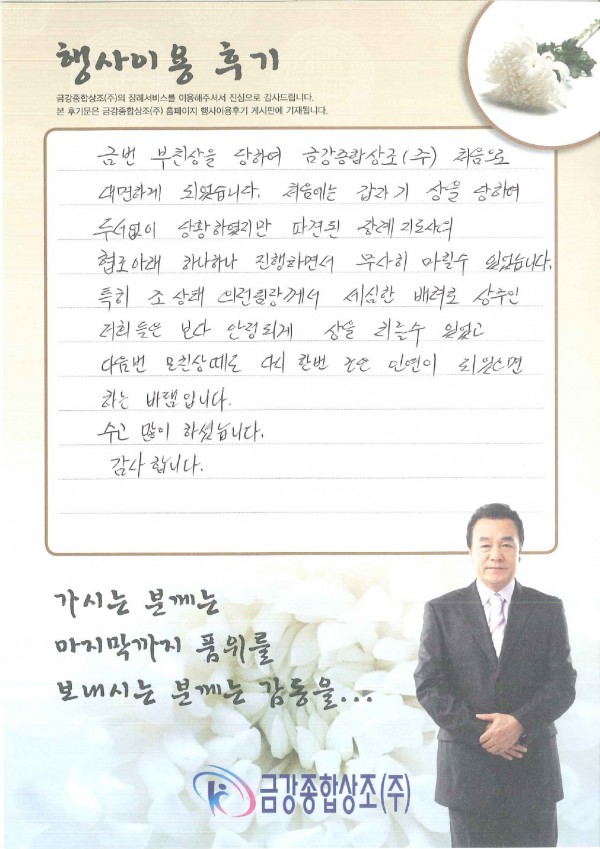 행사이용 후기
금강종합상조(주)의 장례서비스를 이용해주셔서 진심으로 감사드립니다.
본 후기문은 금강종합상조(주) 홈페이지 행사이용후기 게시판에 기재됩니다.
금번 부친상을 당하여 금강종합상조(주) 처음으로
대면하게 되었습니다. 처음에는 갑자기 상을 당하여
두서없이 당황하였지만 파견된 장례지도사의
협조아래 하나하나 진행하면서 무사히 마칠수 있었습니다.
특히 조상래 의전팀장께서 세심한 배려로 상주인
저희들은 보다 안정되게 상을 치를수 있었고
다음번 모친상때도 다시 한번 좋은 인연이 되었으면
하는 바램입니다.
수고 많이 하셨습니다.
감사합니다.
가시는 분께는
마지막까지 품위를
보내시는 분께는 감동을...
금강종합상조(주)